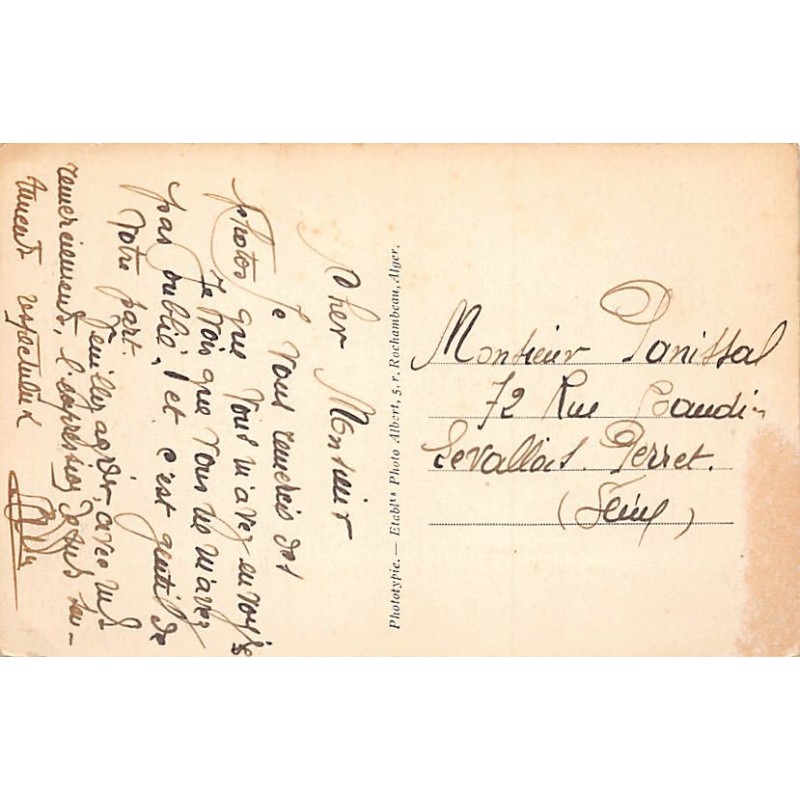 Cher Monsieur
Je vous remercie des
photos que vous m'avez envoyé
Je vois que vous ne m'avez
pas oublié, et c'est gentil de
votre part.
Veuillez agréer, avec mes
remerciements, l'expression de mes sen-
timents respectueux
Phototypie. — Etablts Photo Albert, 5, r. Rochambeau, Alger.
Monsieur Panissal
72 Rue
Levallois. Perret.
(Seine)